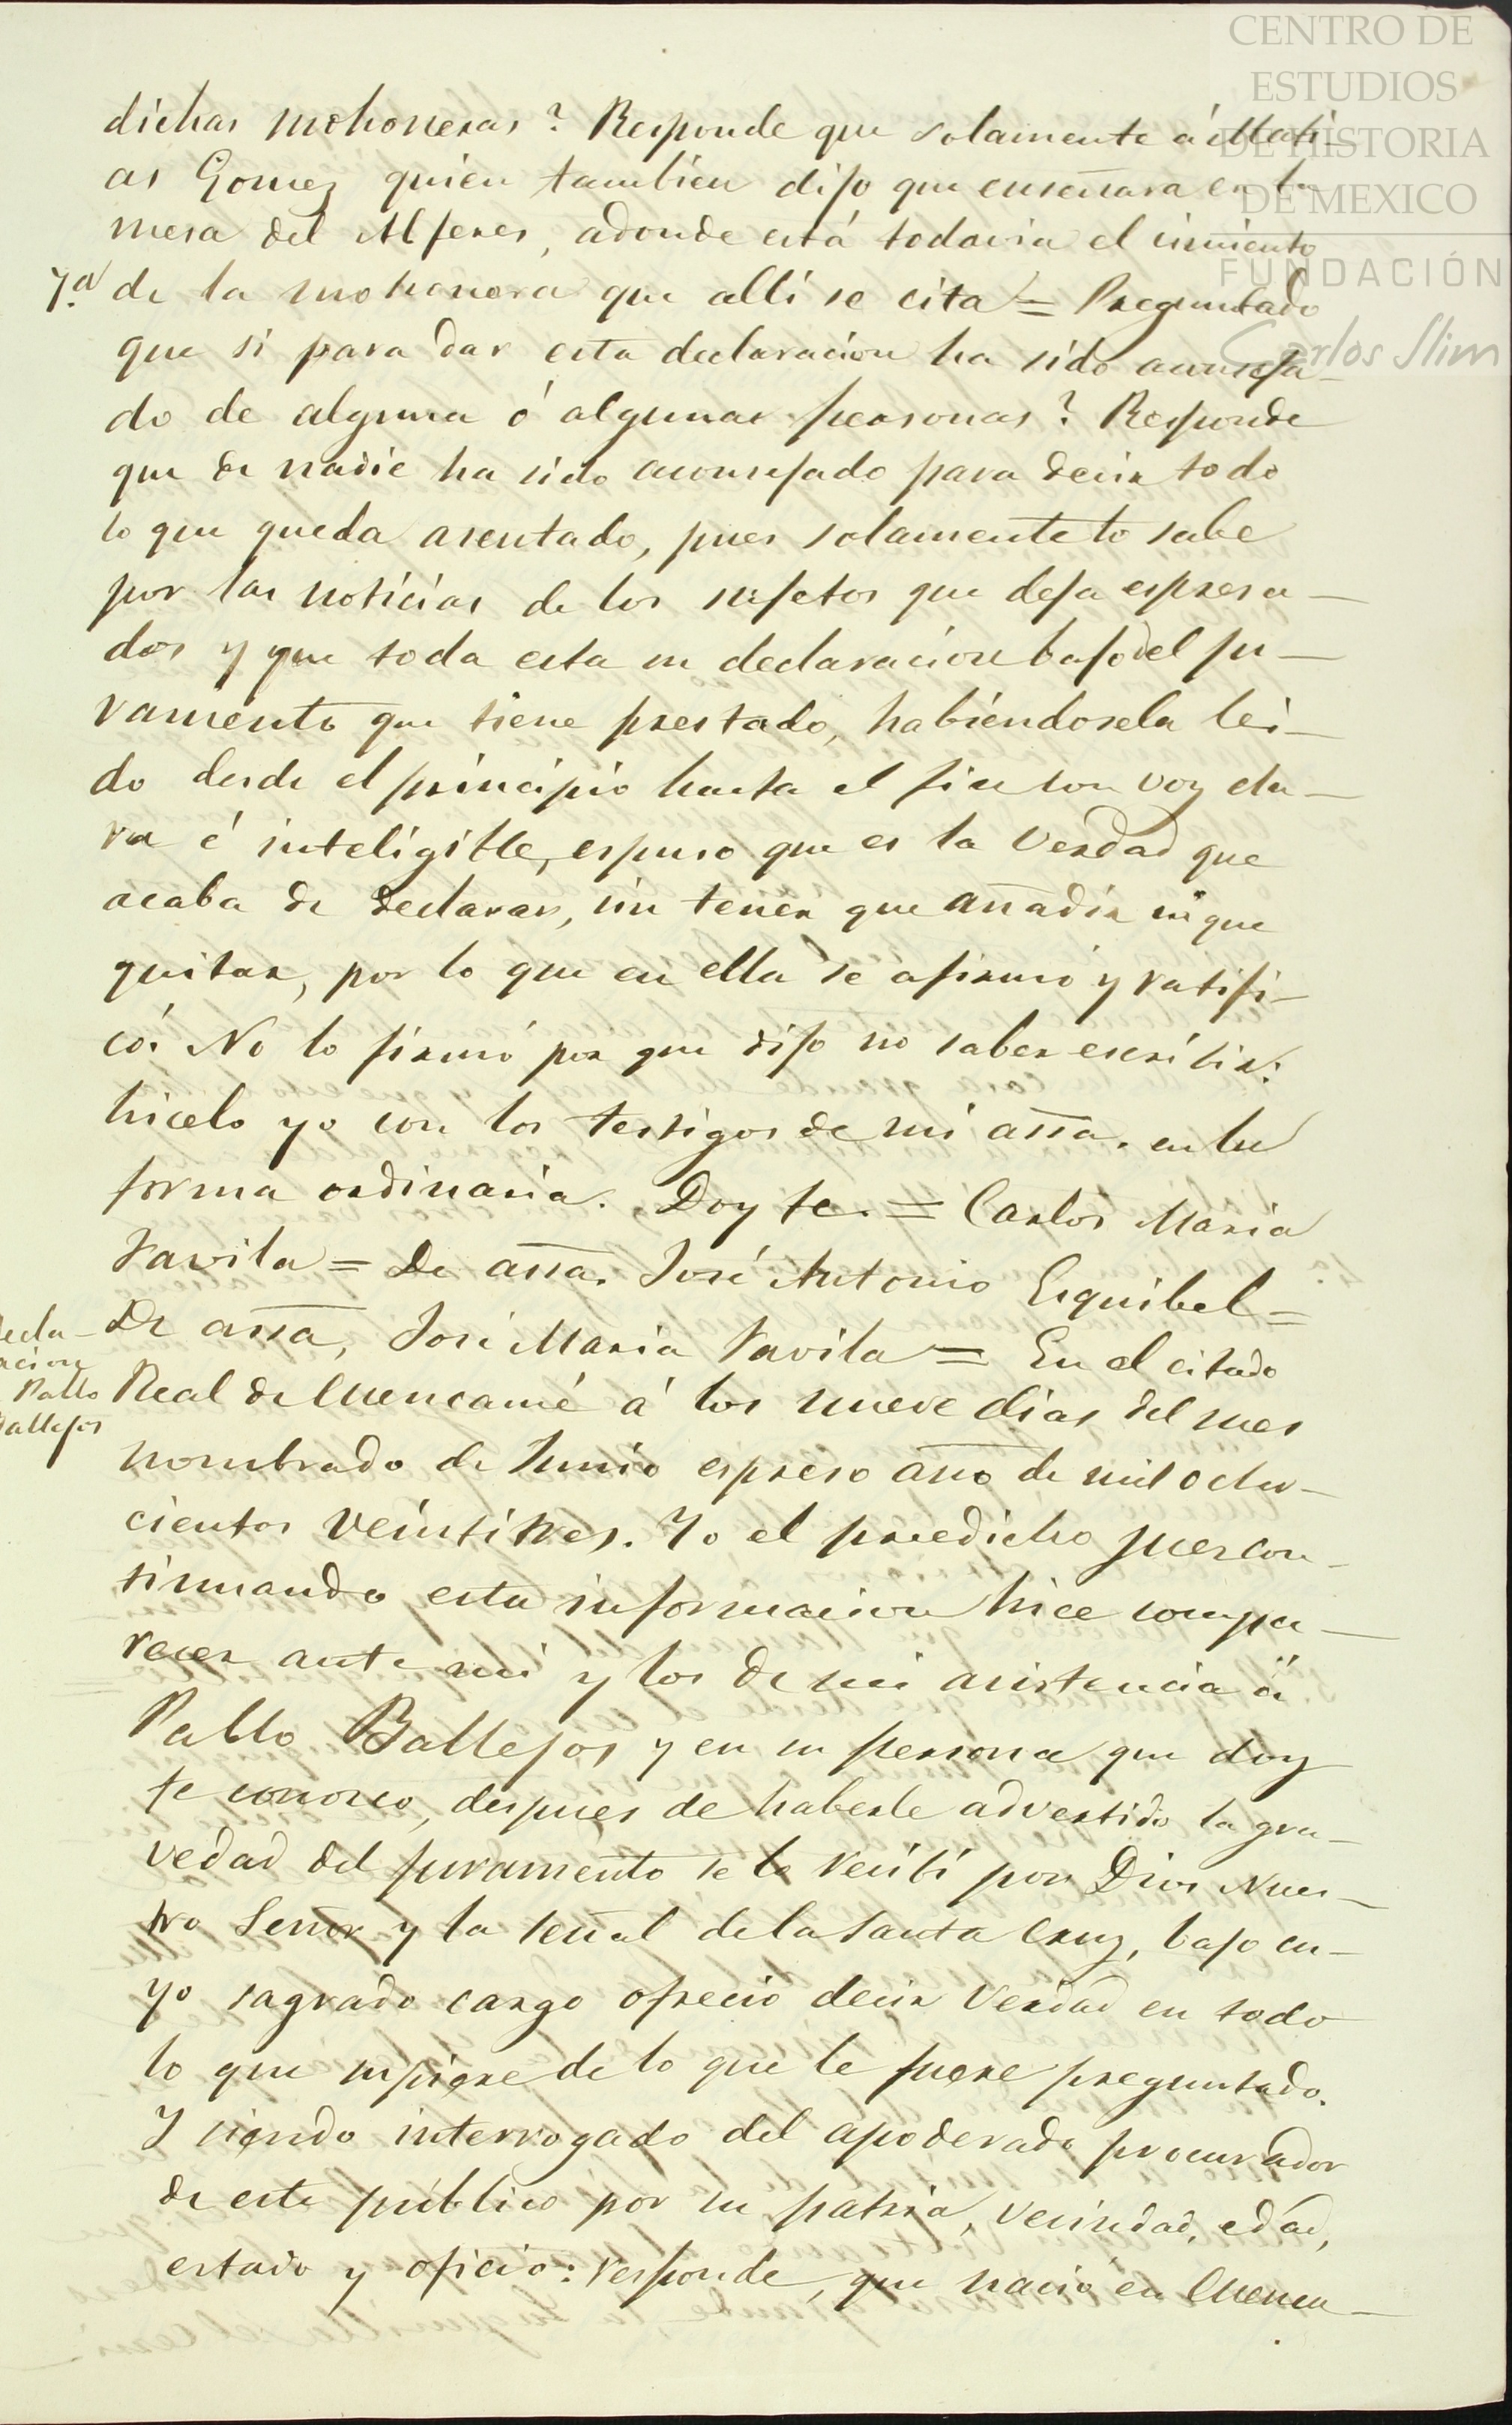 CENTRO DE
ESTUDIOS
DE HISTORIA
DE MEXICO
FUNDACIÓN
Carlos Slim
dichas mohoneras? Responde que solamente á Mati-
as Gomez quien tambien dijo que enseñara en la
mesa del Alferes, adonde está todavia el cimiento
7.a de la mohonera que alli se cita = Preguntado
que si para dar esta declaracion ha sido aconseja-
do de alguna ó algunas personas? Responde
que de nadie ha sido aconsejado para decir todo
lo que queda asentado, pues solamente lo sabe
por las noticias de los sujetos que deja espresa-
dos y que toda esta su declaracion bajo del ju-
ramento que tiene prestado, habiéndosela lei-
do desde el principio hasta el fin con voz cla-
ra é inteligible, espuso que es la verdad que
acaba de declarar, sin tener que añadir ni que
quitar, por lo que en ella se afirmó y ratifi-
có. No lo firmó por que dijo no saber escribir:
hicelo yo con los testigos de mi assa. en la
forma ordinaria. Doy fe. = Carlos Maria
Favila = De assa. José Antonio Esquibel =
De assa, José Maria Favila = En el citado
Real de Cuencamé á los nueve dias del mes
nombrado de Junio espreso año de mil ocho-
cientos veintitres. Yo el predicho Juez con-
tinuando esta informacion hice compa-
recer ante mi y los de mi asistencia á
Pablo Ballejos, y en su persona que doy
fe conosco, despues de haberle advertido la gra-
vedad del juramento se le recibí por Dios Nues-
tro Señor y la señal de la Santa Cruz, bajo cu-
yo sagrado cargo ofreció decir verdad en todo
lo que supiere de lo que le fuere preguntado.
Y siendo interrogado del apoderado procurador
de este público por su patria, vecindad, edad,
estado y oficio: responde, que nació en Cuenca-
ecla-
acion
Pablo
Ballejos